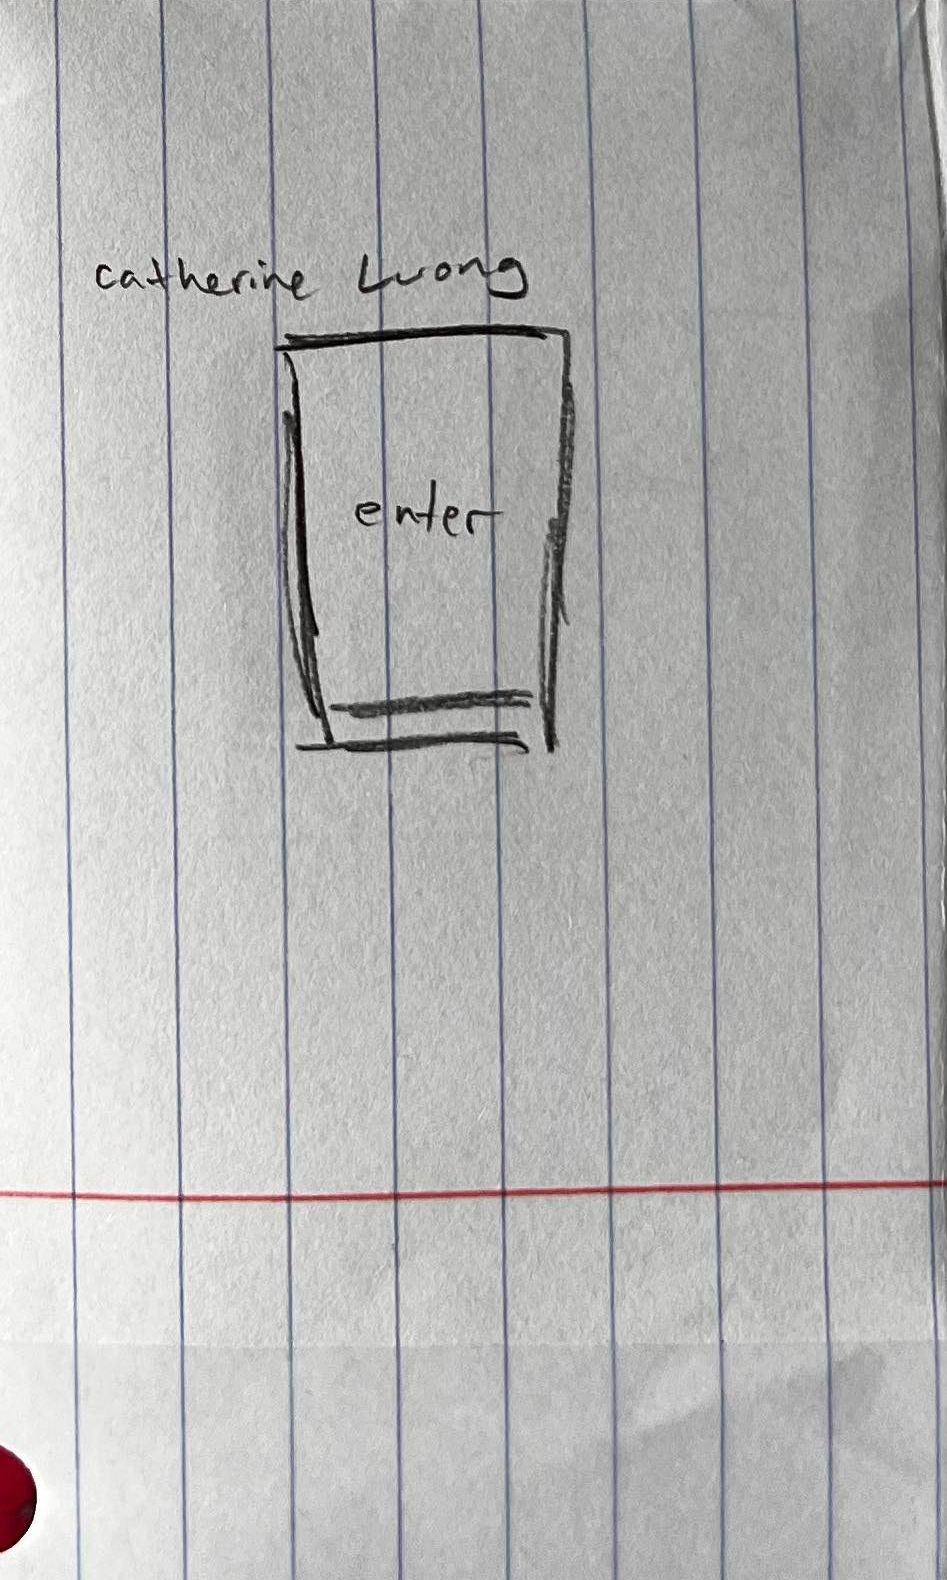 catherine Luong
enter